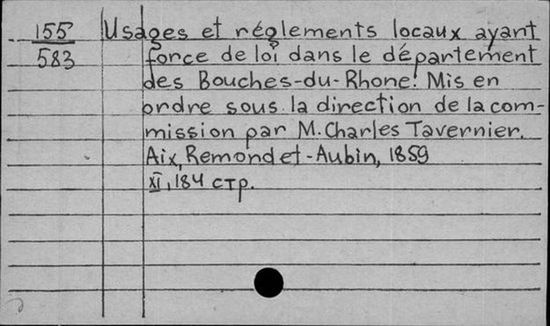 155 Usages et réglements locaux ayant
583 force de loi dans le département
des Bouches-du-Rhone. Mis en
ordre sous la direction de la com-
mission par M. Charles Tavernier.
Aix, Remondet-Aubin, 1859
XI, 184 стр.